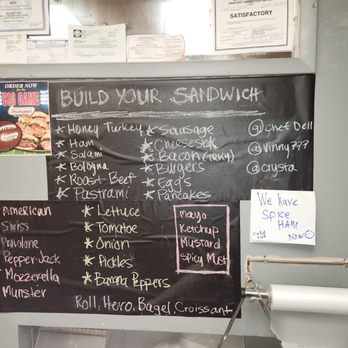 SATISFACTORY
ORDER NOW
BIG GAME
BUILD YOUR SANDWICH
* Honey Turkey
* Ham
* Salami
* Bologna
* Roast-Beef
* Pastrami
* Sausage
* Cheesestk
* Bacon (Turkey)
* Burgers
* Egg's
* Pancakes
@Chef Dell
@Vinny777
@crysta
American
Swiss
Provalone
Pepper-Jack
Mozzerella
Munster
* Lettuce
* Tomatoe
* Onion
* Pickles
* Banana Peppers
Mayo
Ketchup
Mustard
Spicy Must
We have
SPICE
HAM
NOW
Cold
Cut
Roll, Hero, Bagel, Croissant